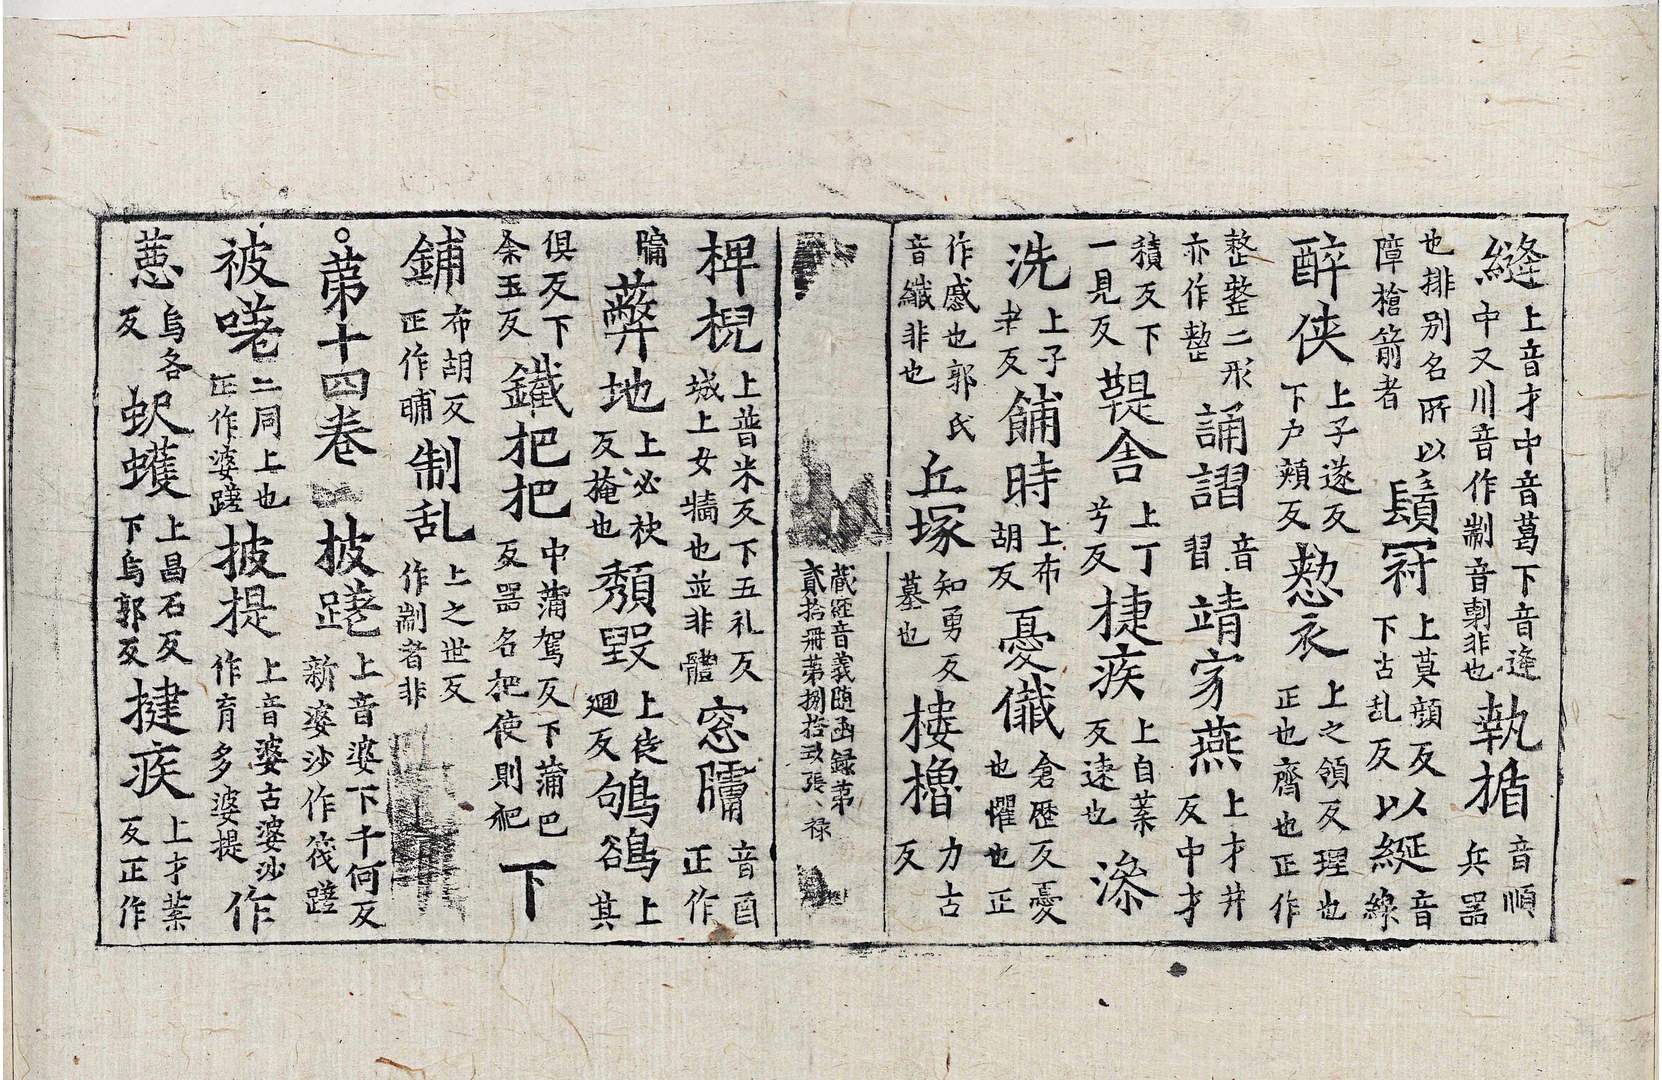 縫上音才中音葛下音逢中又川音作㓡音剌非也執楯音順兵器
也排别名所以障搶箭者鬚冠上莫顔反下古乱反以綖音線
醉俠上子遂反下户頬反憗衣上之領反理也正也齊也正作
整整二形亦作𢿫誦謵音習靖家燕上才井反中才
積反下一見反鞮舍上丁兮反捷疾上自葉反速也滌
洗上子礼反餔時上布胡反憂懴倉歷反憂也懼也正
作慼也郭氏音纖非也丘塚知勇反墓也樓櫓力古反
藏經音義随函録第貳拾册第捌拾玖張、禄
椑棿上普米反下五礼反城上女墻也並非體窓牖音酉正作
牖蔽地上必袂反掩也頽毀上徒廻反鴝鵒上其
俱反下余玉反鐵杷把中蒲駕反下蒲巴反器名把使則杷下
鋪布胡反正作晡制乱上之世反作㓡者非
。苐十四卷披蹉上音婆下千何反新婆沙作筏蹉
被嗟二同上也正作婆蹉披提上音婆古婆沙作育多婆提作
蒽烏各反蚇蠖上昌石反下烏郭反揵疾上才葉反正作